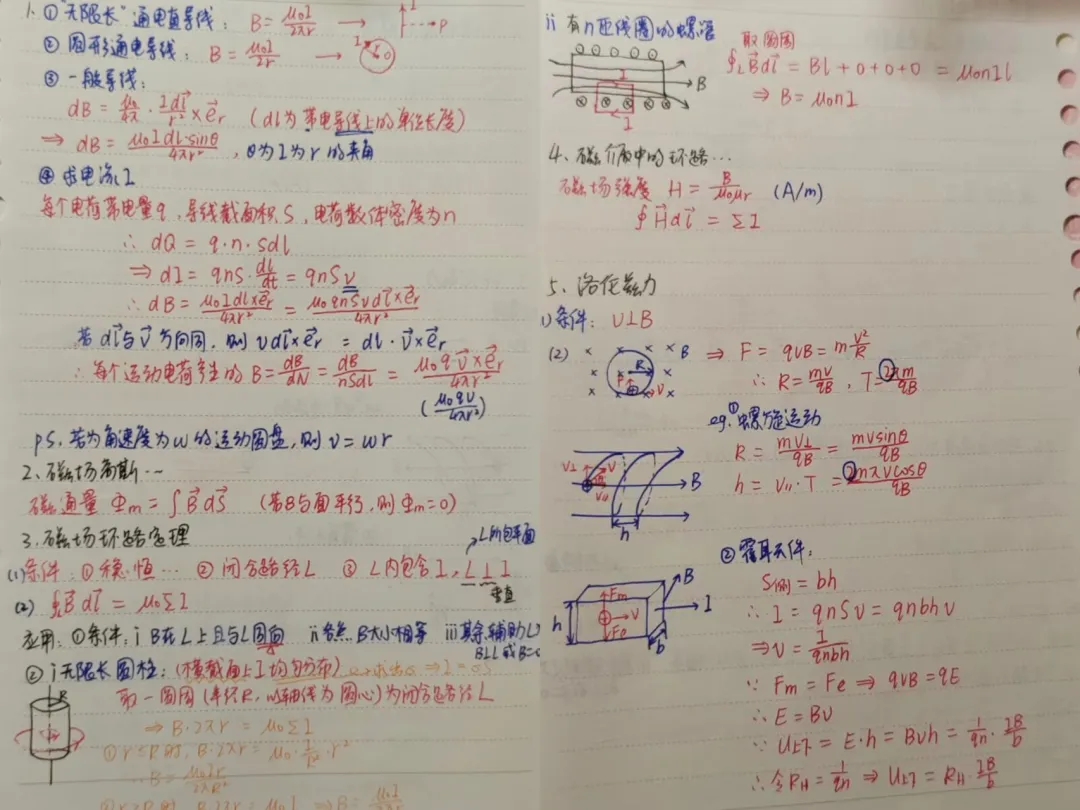 1. ① "无限长"通电直导线: B = μ₀I/2πr → I r P
② 圆形通电导线: B = μ₀I/2r → I r O
③ 一般导线:
dB = μ₀/4π · Idl⃗/r² × e⃗r (dl为带电导线上的单位长度)
⇒ dB = μ₀Idl·sinθ/4πr², θ为I为r的夹角
④ 求电流I
每个电荷带电量q, 导线截面积S, 电荷数体密度为n
∴ dQ = q·n·Sdl
⇒ dI = qnS·dl/dt = qnSv
∴ dB = μ₀Idl×e⃗r/4πr² = μ₀qnSvdl⃗×e⃗r/4πr²
若dl⃗与v⃗方向同, 则 vdl⃗×e⃗r = dl·v⃗×e⃗r
∴ 每个运动电荷产生的 B = dB/dN = dB/nSdl = μ₀q·v⃗×e⃗r/4πr²
(μ₀qv/4πr²)
ps. 若为角速度为w的运动圆盘, 则 v = wr
2. 磁场高斯…
磁通量 Φm = ∫B⃗dS⃗ (若B与面平行, 则Φm=0)
3. 磁场环路定理
L所包平面
(1) 条件: ① 稳恒… ② 闭合路径L ③ L内包含I, L⊥I
垂直
(2) ∮L B⃗dl⃗ = μ₀ΣI
应用: ①条件: i B在L上且与L同向 ii 各点B大小相等 iii 其余辅助L
B⊥L或B=0
② i 无限长圆柱: (横截面上I均匀分布) ⇒ I = σS
取一圆周(半径R, 以轴线为圆心)为闭合路径L
R
⇒ B·2πr = μ₀ΣI
① r≤R时, B·2πr = μ₀·I/R²·r²
∴ B = μ₀Ir/2πR²
② r>R时, B·2πr = μ₀I ⇒ B = μ₀I
ii 有n匝线圈的螺管
取圆周
∮L B⃗dl⃗ = Bl + 0 + 0 + 0 = μ₀nIl
⇒ B = μ₀nI
B
I
I
4. 磁介质中的环路…
磁场强度 H = B/μ₀μr (A/m)
∮H⃗dl⃗ = ΣI
5. 洛伦兹力
(1) 条件: v⊥B
(2) × × × × B R F v ⇒ F = qvB = m v²/R
∴ R = mv/qB, T = 2πm/qB
eg. ① 螺旋运动
R = mv⊥/qB = mvsinθ/qB
h = v∥·T = 2mπvcosθ/qB
v⊥ v v∥ B
h
② 霍耳元件:
S侧 = bh
∴ I = qnSv = qnbhv
⇒ v = I/qnbh
∵ Fm = Fe ⇒ qvB = qE
∴ E = Bv
∴ U上下 = E·h = Bvh = 1/qn · IB/b
∴ 令RH = 1/qn ⇒ U上下 = RH·IB/b
B
Fm
I
v
h
Fe
b